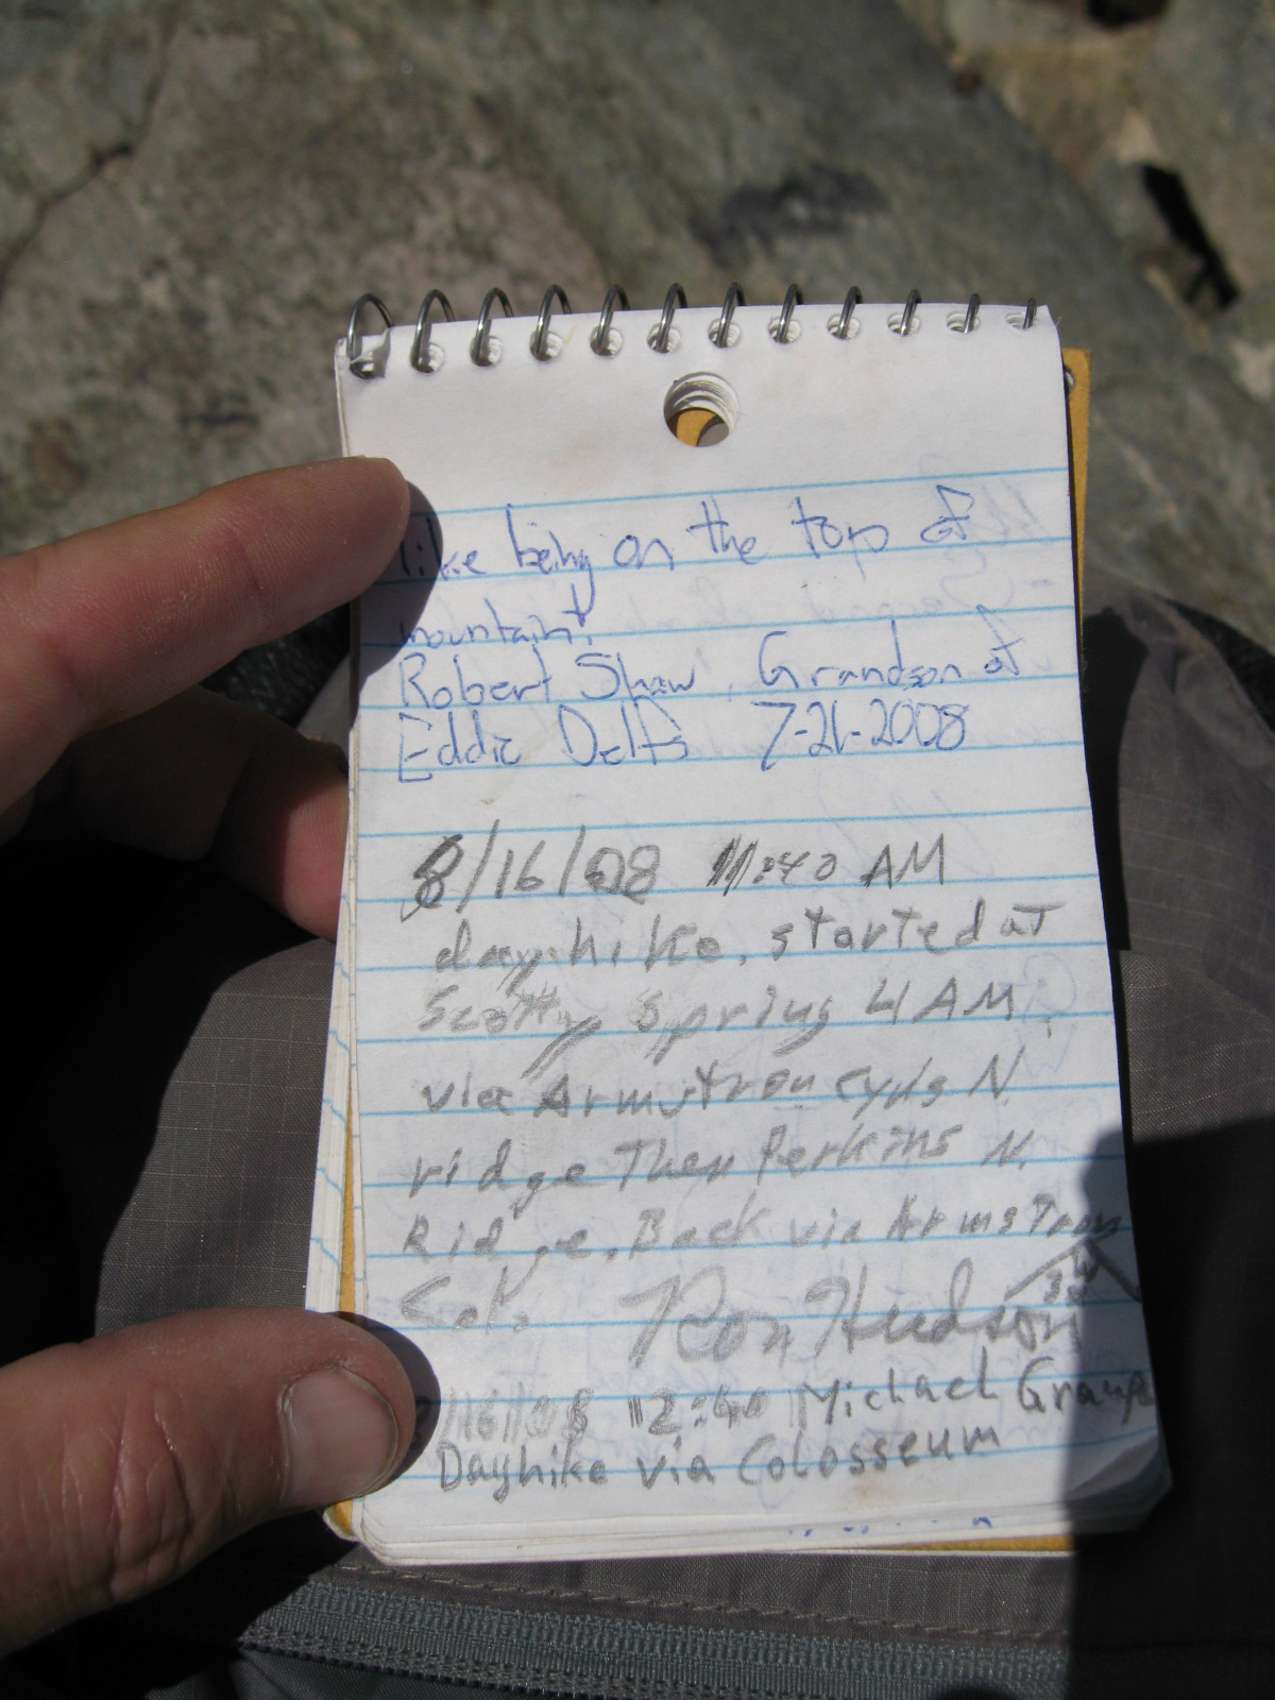 like being on the top of
mountain!
Robert Shaw, Grandson of
Eddie Delfs 7-21-2008
8/16/08 11:40 AM
dayhike, started at
Scotty Spring 4 AM.
via Armstrong N.
ridge Then Perkins N.
Ridge. Back via Armstrong
Col. Ron Hudson
/16/08 12:40 Michael Graupe
Dayhike via Colosseum